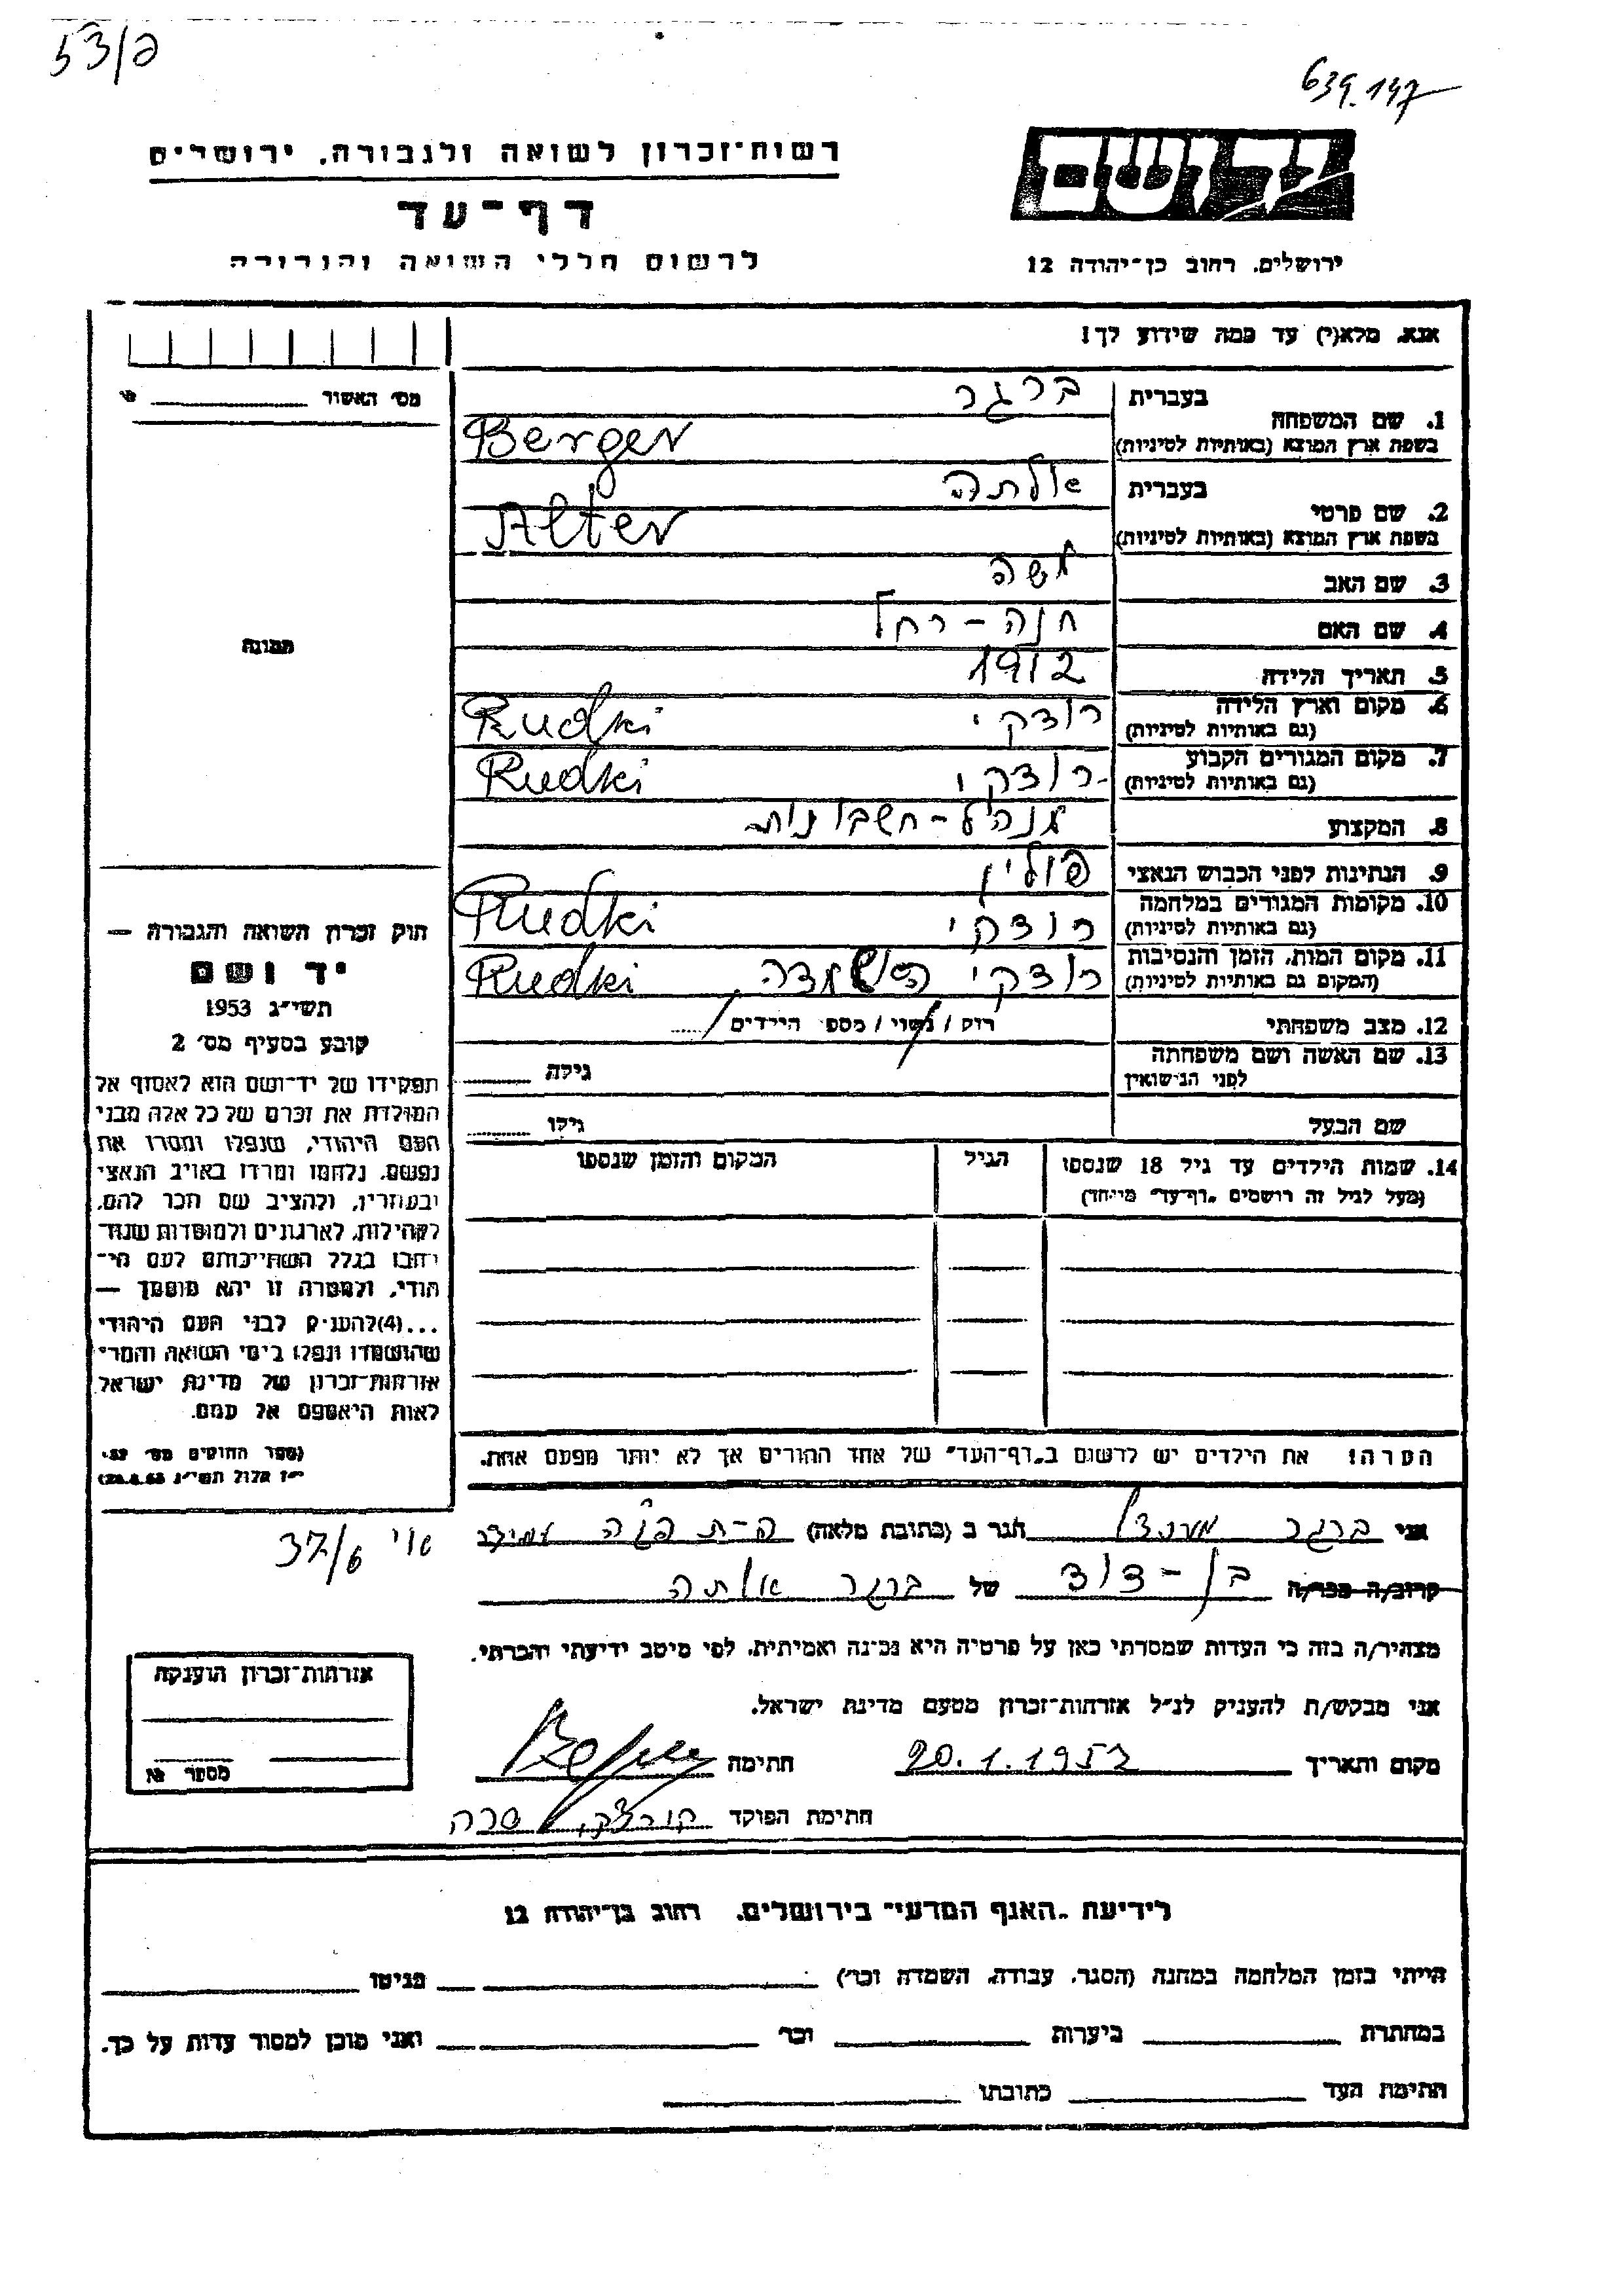 53/פ
639.147
רשות־זכרון לשואה ולגבורה, ירושלים
דף־עד
לרשום חללי השואה והגבורה
ירושלים, רחוב בן־יהודה 12
אנא, מלא(י) עד כמה שידוע לך!
מס׳ האשור
בעברית ברגר
1. שם המשפחה
בשפת ארץ המוצא (באותיות לטיניות) Berger
בעברית
2. שם פרטי
בשפת ארץ המוצא (באותיות לטיניות) Alter
3. שם האב משה
4. שם האם חנה - רחל
תמונה
5. תאריך הלידה 1912
6. מקום וארץ הלידה רודקי Rudki
(גם באותיות לטיניות)
7. מקום המגורים הקבוע רודקי Rudki
(גם באותיות לטיניות)
8. המקצוע מנהל - חשבונות
9. הנתינות לפני הכבוש הנאצי פולין
10. מקומות המגורים במלחמה רודקי Rudki
(גם באותיות לטיניות)
11. מקום המות, הזמן והנסיבות רודקי Rudki
(המקום גם באותיות לטיניות)
12. מצב משפחתי רוק / נשוי / מספר הילדים
13. שם האשה ושם משפחתה
לפני הנישואין גילה
שם הבעל גילו
14. שמות הילדים עד גיל 18 שנספו הגיל המקום והזמן שנספו
(מעל לגיל זה רושמים „דף־עד״ מייחד)
הערה: את הילדים יש לרשום ב„דף־העד״ של אחד ההורים אך לא יותר מפעם אחת.
חוק זכרון השואה והגבורה —
יד ושם
תשי״ג 1953
קובע בסעיף מס׳ 2
תפקידו של יד־ושם הוא לאסוף אל
המולדת את זכרם של כל אלה מבני
העם היהודי, שנפלו ומסרו את
נפשם, נלחמו ומרדו באויב הנאצי
ובעוזריו, ולהציב שם וזכר להם,
לקהילות, לארגונים ולמוסדות שנח־
רבו בגלל השתייכותם לעם הי־
הודי, ולמטרה זו יהא מוסמך —
...(4) להעניק לבני העם היהודי
שהושמדו ונפלו בימי השואה והמרי
אזרחות־זכרון של מדינת ישראל
לאות היאספם אל עמם.
(ספר החוקים מס׳ 132,
י״ז אלול תשי״ג 28.8.53)
37/6
אני ברגר הגר ב (כתובת מלאה)
קרוב/ה מכר/ה בן - דוד של ברגר
מצהיר/ה בזה כי העדות שמסרתי כאן על פרטיה היא נכונה ואמיתית, לפי מיטב ידיעתי והכרתי.
אני מבקש/ת להעניק לנ״ל אזרחות־זכרון מטעם מדינת ישראל.
מקום ותאריך חתימה
חתימת הפוקד שרה
אזרחות־זכרון הוענקה
מספר
לידיעת „האגף המדעי״ בירושלים, רחוב בן־יהודה 12
הייתי בזמן המלחמה במחנה (הסגר, עבודה, השמדה וכו׳) בגיטו
במחתרת ביערות וכו׳ ואני מוכן למסור עדות על כך.
חתימת העד כתובתו